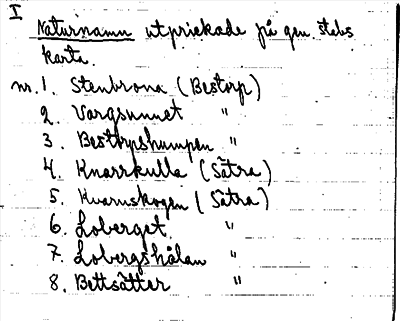 I
Naturnamn utprickade på gen. stabs
karta.
nr. 1. Stenbrona (Bestorp)
2. Vargsunnet "
3. Bestorpshumpen "
4. Knarrkulla (Sätra)
5. Kvarnskogen (Sätra)
6. Loberget "
7. Lobergshålan "
8. Bettsätter "